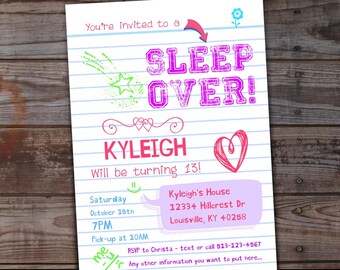 You're invited to a
SLEEP
OVER!
KYLEIGH
Will be turning 13!
Saturday
October 28th
7PM
Pick-up at 10AM
Kyleigh's House
12334 Hillcrest Dr
Louisville, KY 40288
RSVP to Christa - text or call 513-123-4567
Any other information you want to put here...